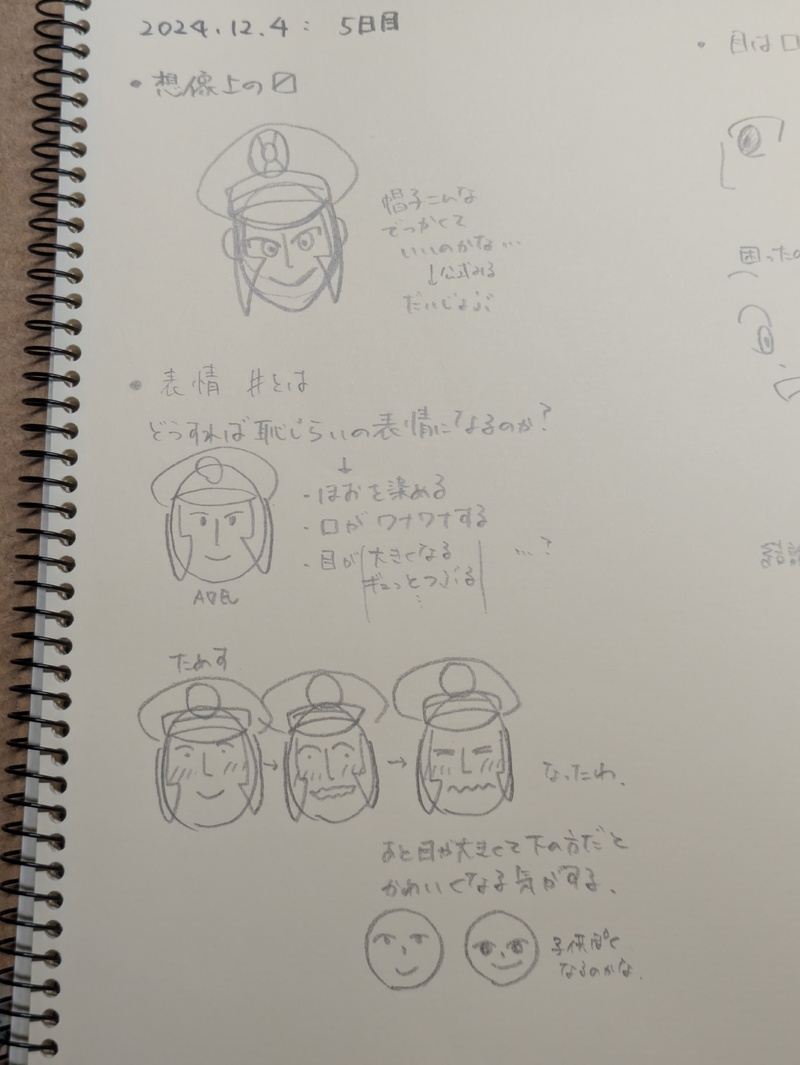 2024.12.4： 5日目
・想像上の〼
帽子こんな
でっかくて
いいのかな…
↓公式みる
だいじょぶ
・表情 #とは
どうすれば恥じらいの表情になるのか？
↓
・ほおを染める
・口がワナワナする
・目が 大きくなる …？
ギュっとつぶる
⋮
ためす
→ →
なったわ。
あと目が大きくて下の方だと
かわいくなる気がする。
子供っぽく
なるのかな。
・目は口
困った